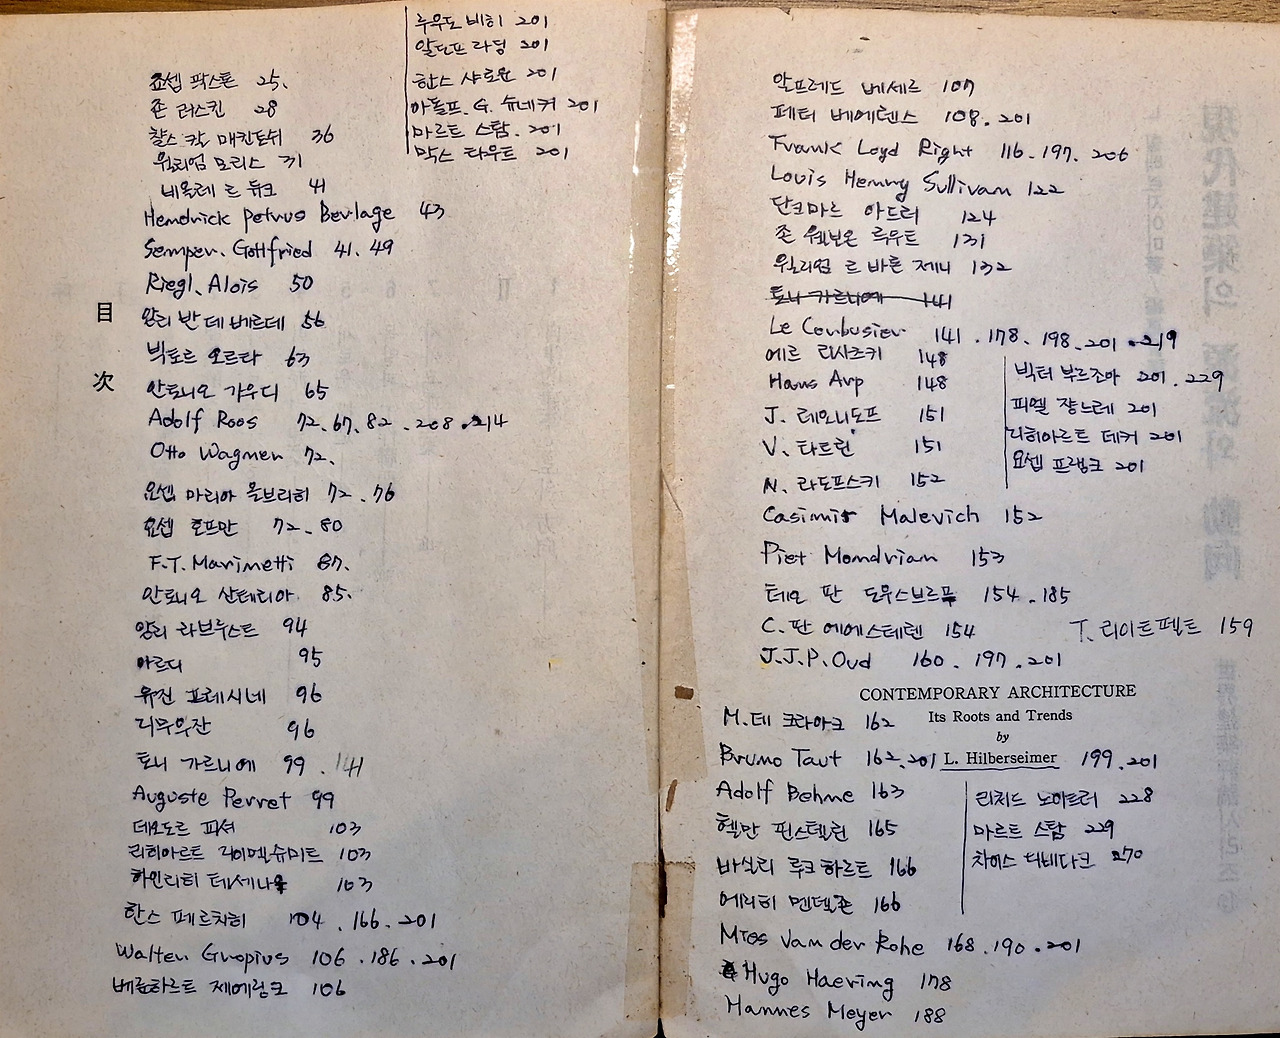 루우도 비히 201
알돌프 라딩 201
한스 샤로운 201
아돌프. G. 슈네커 201
마르트 스탐. 201
막스 타우트 201
죠셉 팍스톤 25.
존 러스킨 28
찰스 캇 매킨토쉬 36
윌리엄 모리스 31
비올레 르 듀크 41
Hendrick petrus Berlage 43
Semper. Gottfried 41. 49
Riegl. Alois 50
目
次
앙리 반 데 베르데 56
빅토르 오르타 63
안토니오 가우디 65
Adolf Roos 72. 67. 82 . 208 . 214
Otto Wagner 72.
요셉 마리아 올브리히 72 . 76
요셉 호프만 72 . 80
F.T. Marinetti 87.
안토니오 산테리아. 85.
앙리 라브루스트 94
아르디 95
유진 프레시네 96
디무우잔 96
토니 가르니에 99 . 141
Auguste Perret 99
데오도르 피셔 103
리히아르트 리이멜슈미트 103
하인리히 테세나우 103
한스 페르치히 104 . 166 . 201
Walter Gropius 106 . 186 . 201
베른하르트 제에링크 106
알프레드 베세르 107
페터 베에렌스 108 . 201
Frank Loyd Right 116 . 197 . 206
Louis Henry Sullivan 122
단크마르 아드러 124
존 웰보온 루우트 131
윌리엄 르 바론 제니 132
토니 가르니에 141
Le Corbusier 141 . 178 . 198 . 201 . 219
에르 리시츠키 148
Hans Arp 148
J. 레오니도프 151
V. 타트린 151
N. 라도프스키 152
빅터 부르죠아 201 . 229
피엘 쟝느레 201
리히아르트 데커 201
요셉 프랭크 201
Casimir Malevich 152
Piet Mondrian 153
테오 판 도우스브르프 154 . 185
C. 판 에에스테렌 154
T. 리이트펠트 159
J.J.P. Oud 160 . 197 . 201
CONTEMPORARY ARCHITECTURE
Its Roots and Trends
by
L. Hilberseimer 199 . 201
M. 데 크라아크 162
Bruno Taut 162 . 201
Adolf Behne 163
헬만 핀스텔린 165
바실리 루크하르트 166
에리히 멘델존 166
Mies Van der Rohe 168 . 190 . 201
Hugo Haering 178
Hannes Meyer 188
리처드 노이트러 228
마르트 스탐 229
챠아스 디비다크 270